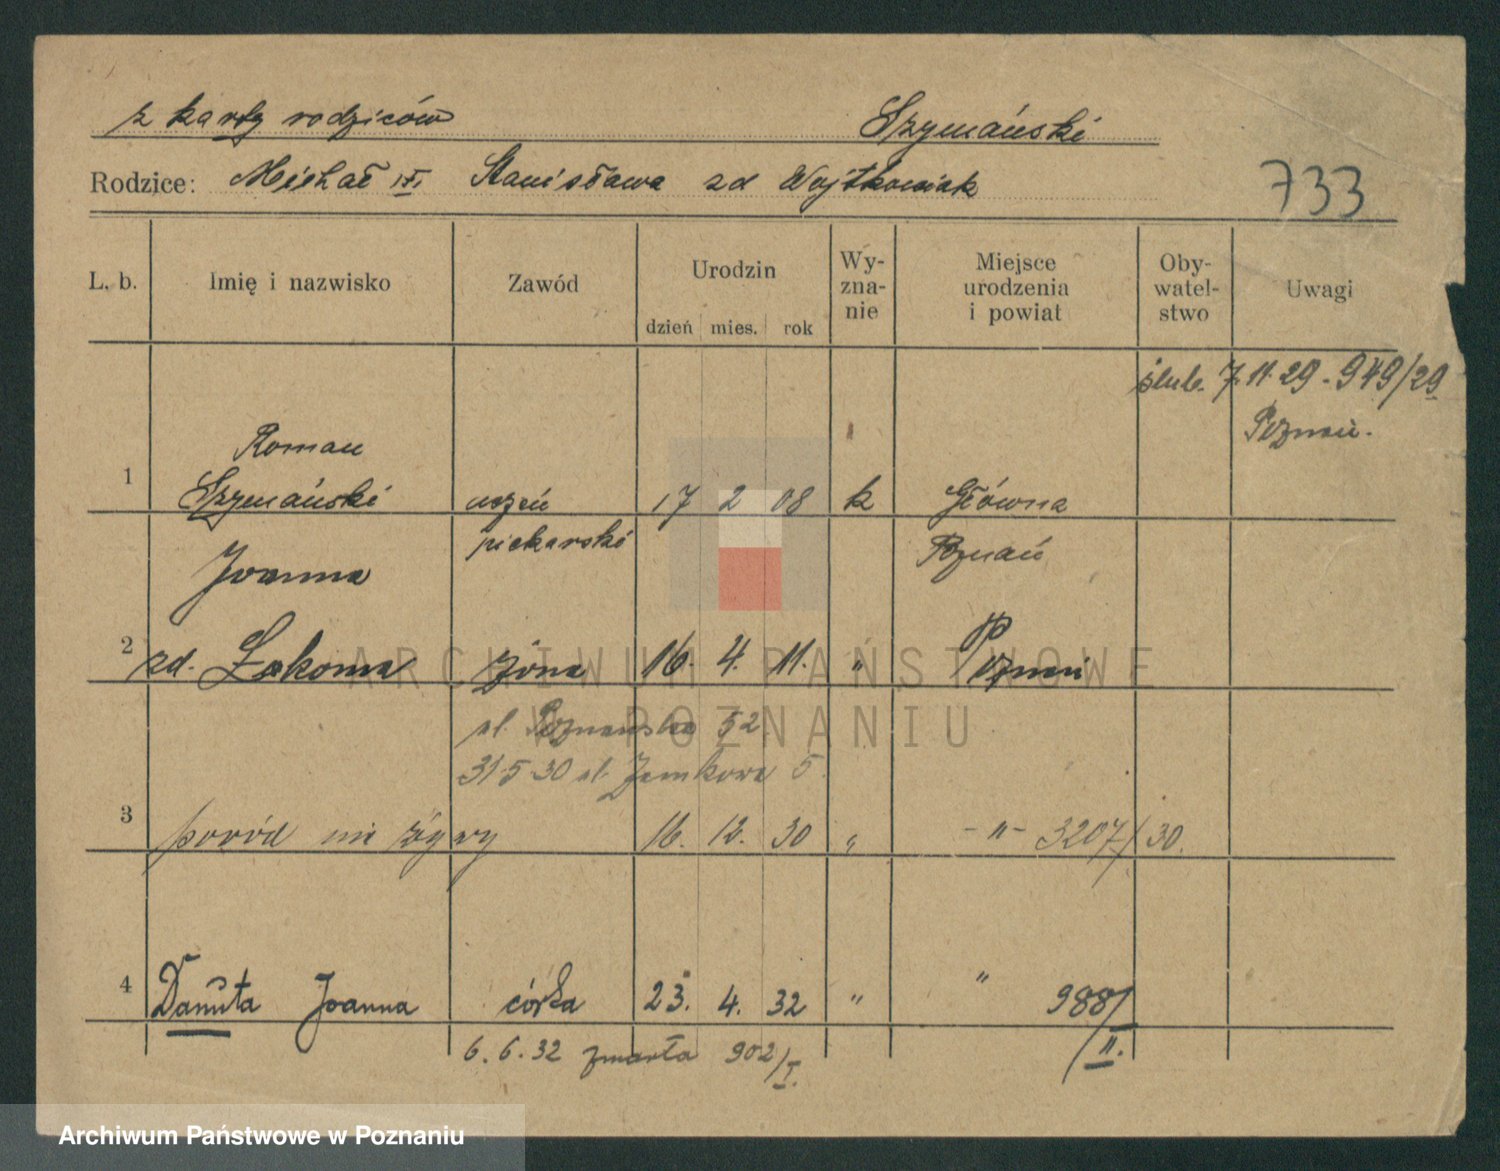 z karty rodziców Szymański
Rodzice: Michał i Stanisława zd Wojtkowiak 733
L. b. Imię i nazwisko Zawód Urodzin dzień mies. rok Wy-zna-nie Miejsce urodzenia i powiat Oby-watel-stwo Uwagi
ślub. 7.11.29 - 949/29
Poznań.
Roman
1 Szymański uczeń 17 2 08 k Główna
piekarski Poznań
Joanna
2 zd. Łakoma żona 16. 4. 11. „ Poznań
ul. Poznańska 52
31 5 30 ul. Zamkowa 5.
3 poród nie żywy 16. 12. 30 „ -„- 3207/30.
4 Danuta Joanna córka 23. 4. 32 „ „ 988/II.
6. 6. 32 zmarła 902/I.
ARCHIWUM PAŃSTWOWE
W POZNANIU
Archiwum Państwowe w Poznaniu